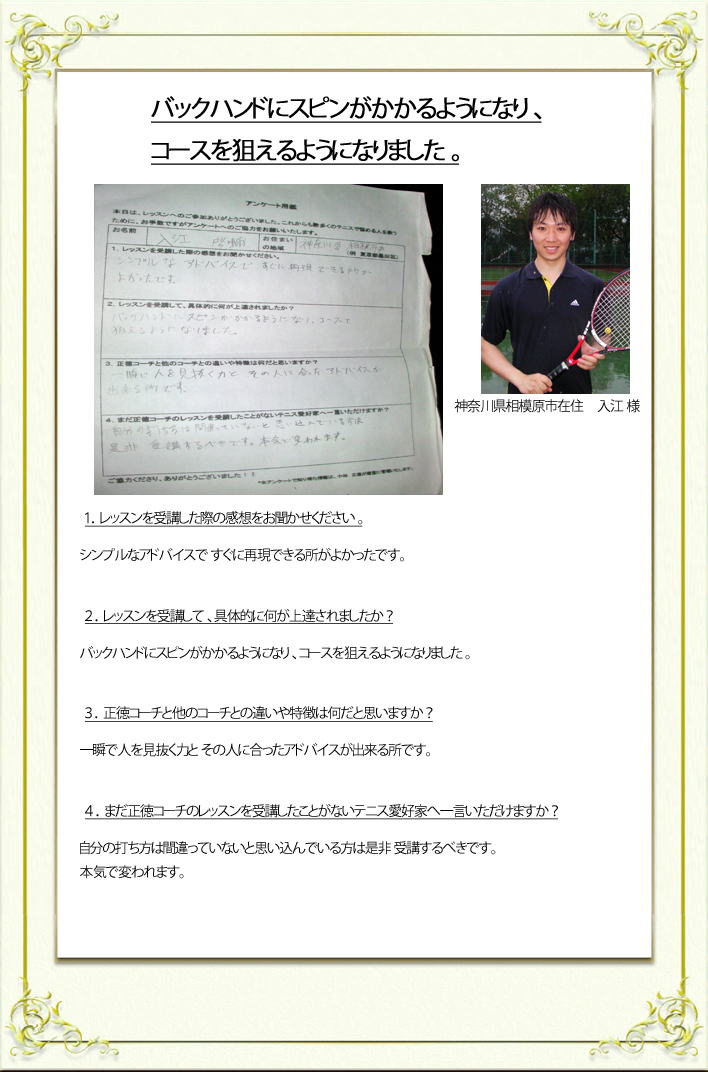 バックハンドにスピンがかかるようになり、
コースを狙えるようになりました。
アンケート用紙
本日は、レッスンへのご参加ありがとうございました。これからも数多くのテニスで悩める人を救う
ために、お手数ですがアンケートへのご協力をお願いいたします。
お名前 入江 お住まいの地域 神奈川県 相模原市
1. レッスンを受講した際の感想をお聞かせください。
シンプルな アドバイスで すぐに再現できる所が
よかったです。
2. レッスンを受講して、具体的に何が上達されましたか?
バックハンドにスピンがかかるようになり、コースを
狙えるようになりました。
3. 正徳コーチと他のコーチとの違いや特徴は何だと思いますか?
一瞬で人を見抜く力と その人に合ったアドバイスが
出来る所です。
4. まだ正徳コーチのレッスンを受講したことがないテニス愛好家へ一言いただけますか?
自分の打ち方は間違っていないと思い込んでいる方は
是非 受講するべきです。本気で変われます。
ご協力くださり、ありがとうございました!!
adidas
神奈川県相模原市在住 入江 様
1. レッスンを受講した際の感想をお聞かせください。
シンプルなアドバイスで すぐに再現できる所がよかったです。
2. レッスンを受講して、具体的に何が上達されましたか?
バックハンドにスピンがかかるようになり、コースを狙えるようになりました。
3. 正徳コーチと他のコーチとの違いや特徴は何だと思いますか?
一瞬で人を見抜く力と その人に合ったアドバイスが出来る所です。
4. まだ正徳コーチのレッスンを受講したことがないテニス愛好家へ一言いただけますか?
自分の打ち方は間違っていないと思い込んでいる方は是非 受講するべきです。
本気で変われます。